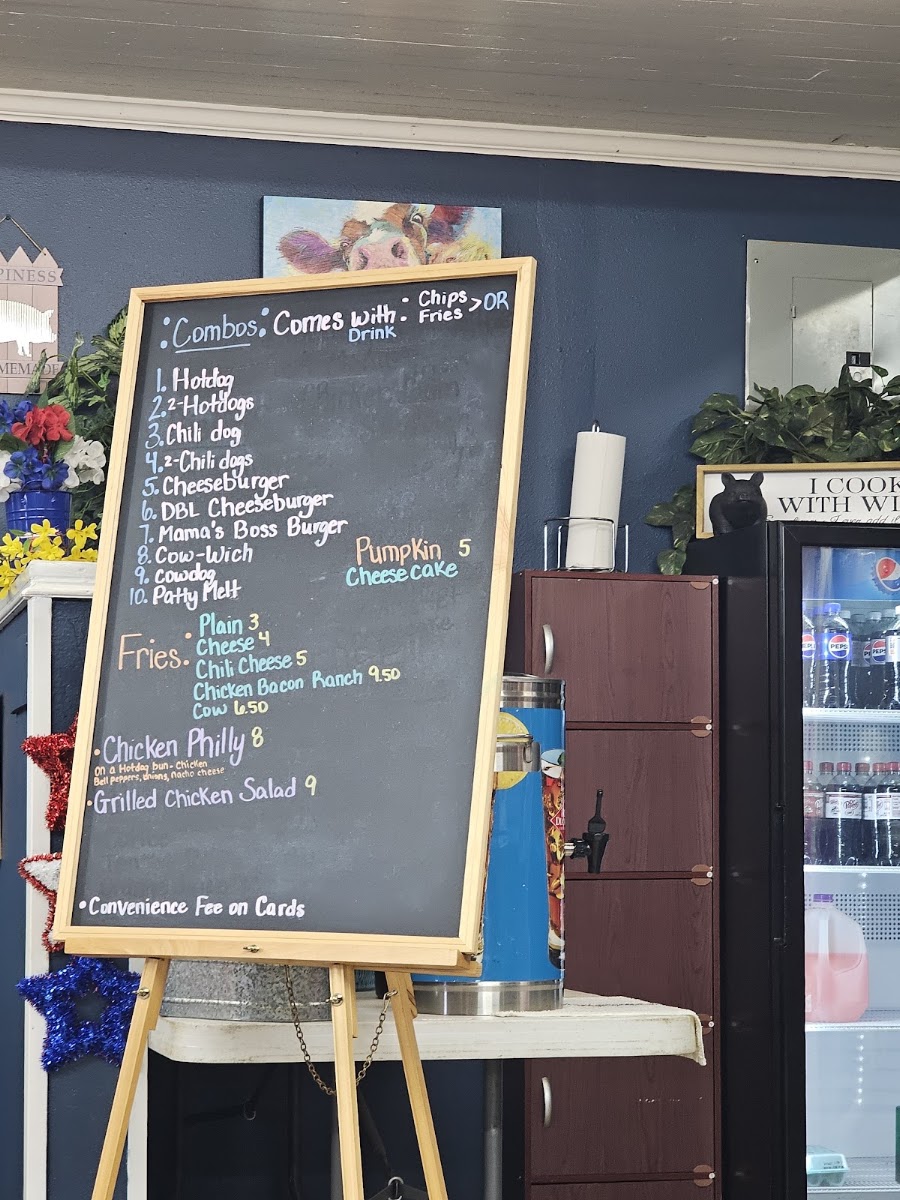 :Combos: Comes with: Chips > OR
Fries
Drink
1. Hotdog
2. 2-Hotdogs
3. Chili dog
4. 2-Chili dogs
5. Cheeseburger
6. DBL Cheeseburger
7. Mama's Boss Burger
8. Cow-Wich
9. Cowdog
10. Patty Melt
Pumpkin 5
Cheesecake
Fries: Plain 3
Cheese 4
Chili Cheese 5
Chicken Bacon Ranch 9.50
Cow 6.50
• Chicken Philly 8
On a Hotdog bun - Chicken
Bell peppers, onions, nacho cheese
• Grilled Chicken Salad 9
• Convenience Fee on Cards
PINESS
MEMADE
I COOK
WITH WI
PEPSI